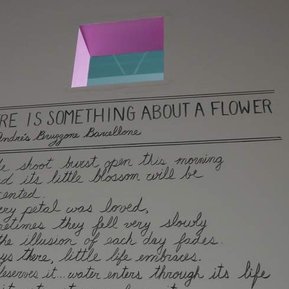 RE IS SOMETHING ABOUT A FLOWER
Andrés Bruzzone Barcellone
shoot burst open this morning
d its little blossom will be
ented.
ery petal was loved,
etimes they fell very slowly
the illusion of each day fades.
ys there, little life embraces.
deserves it...water enters through its life